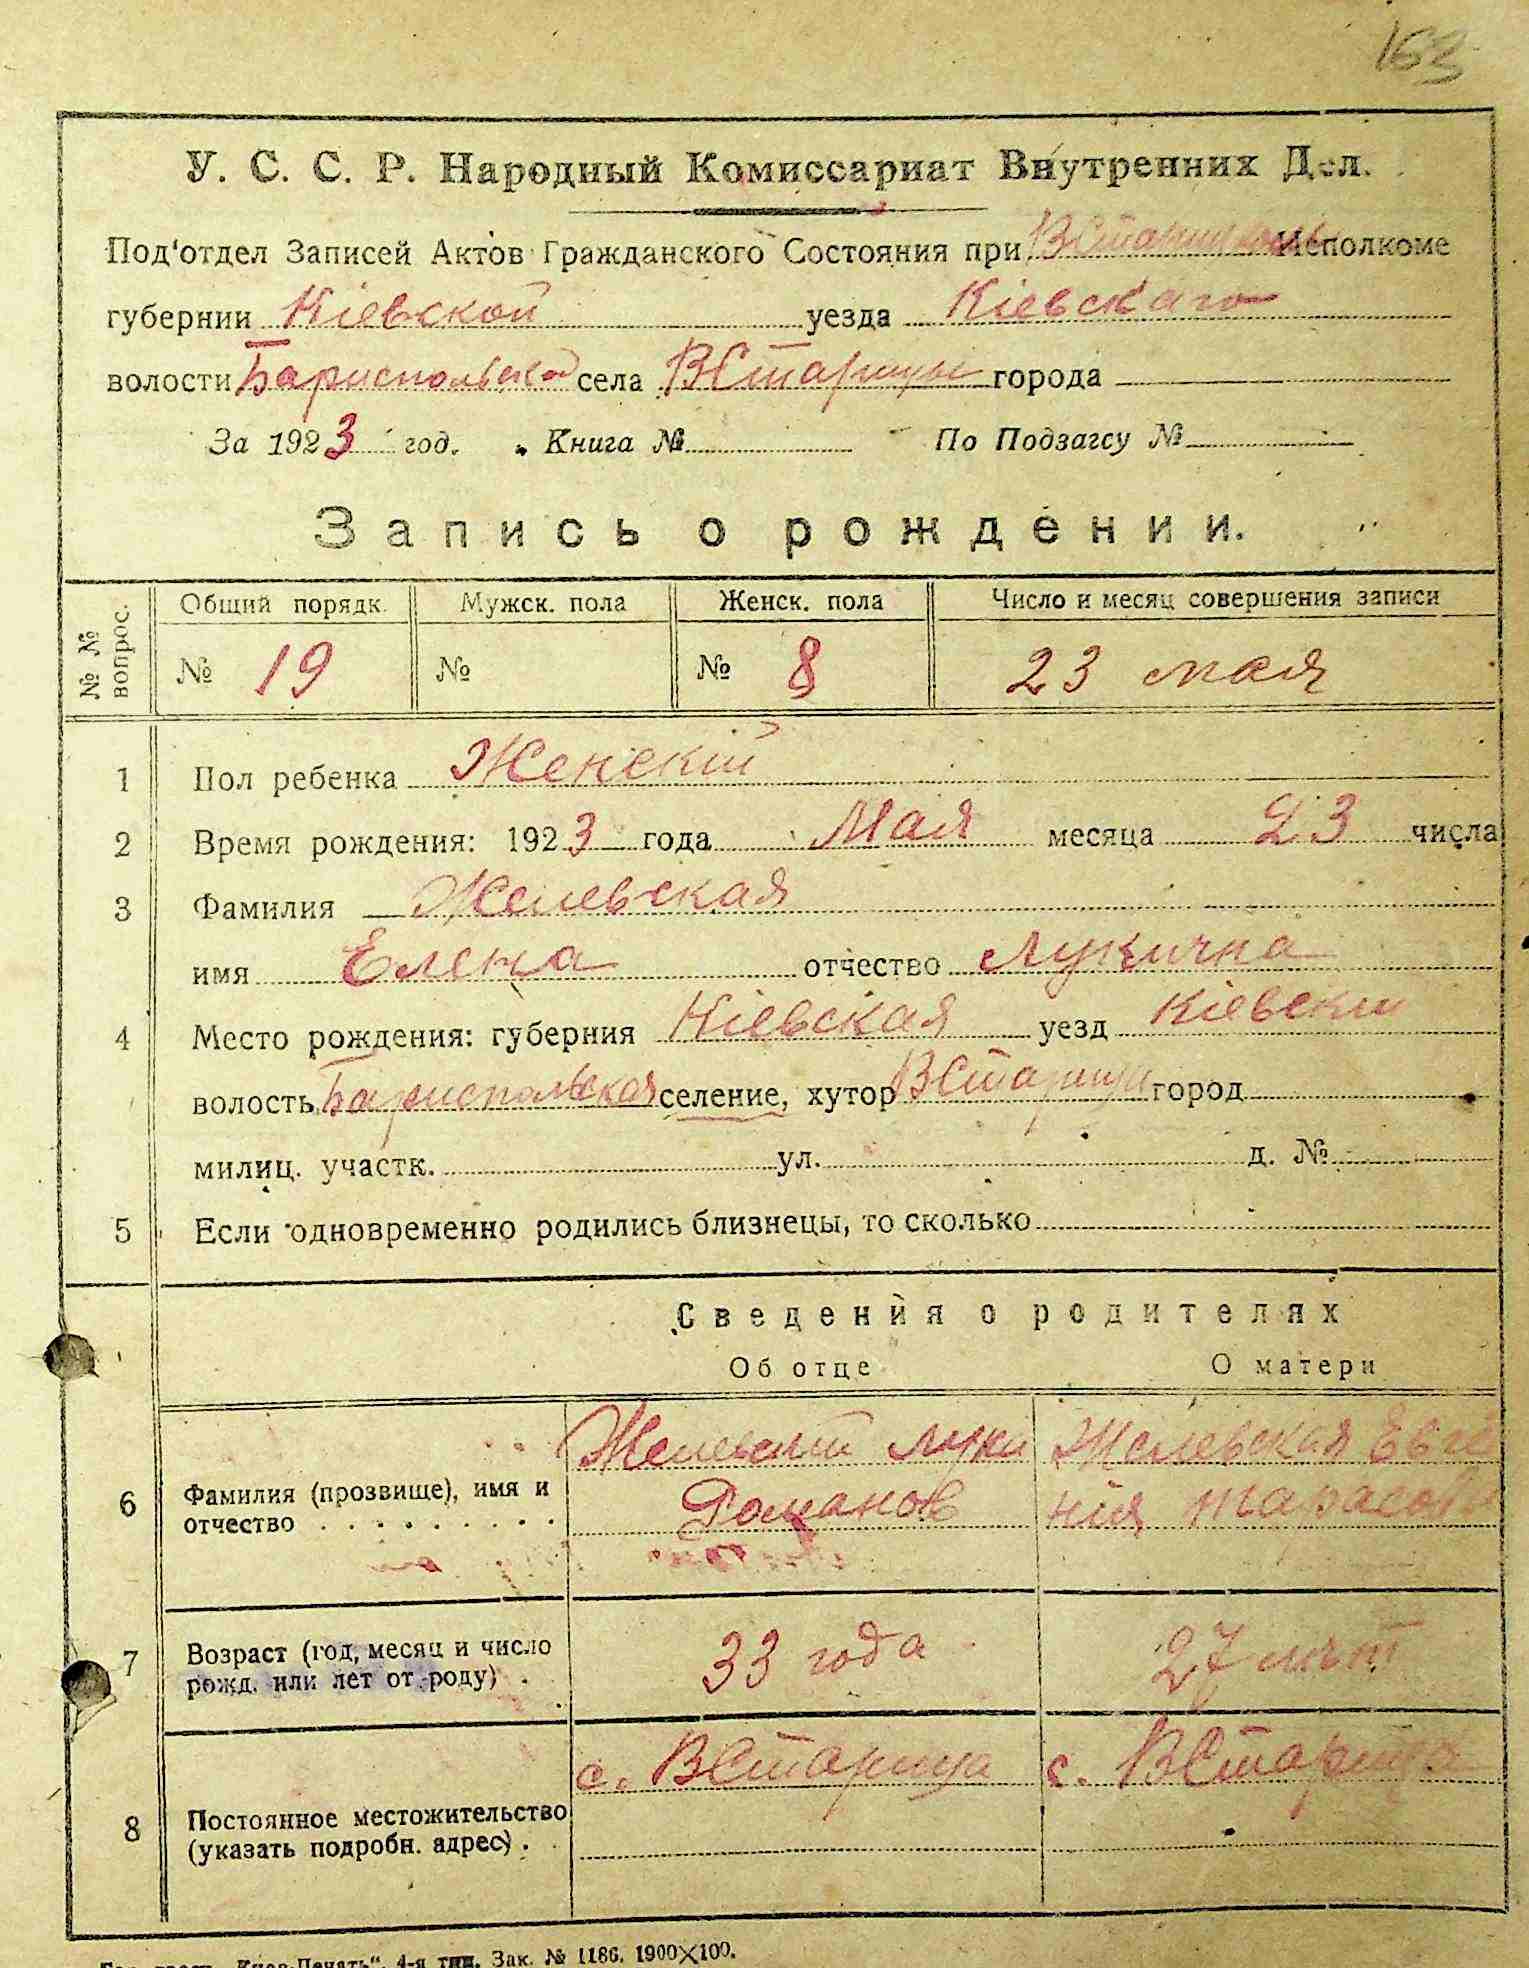 163
У. С. С. Р. Народный Комиссариат Внутренних Дел.
Под'отдел Записей Актов Гражданского Состояния при ВСтарицком Исполкоме
губернии Кіевской уезда Кіевскаго
волости Бариспольской села ВСтарицы города
За 1923 год. Книга № По Подзагсу №
Запись о рождении.
№ № вопрос. Общий порядк. Мужск. пола Женск. пола Число и месяц совершения записи
№ 19 № № 8 23 мая
1 Пол ребенка Женскій
2 Время рождения: 1923 года Мая месяца 23 числа
3 Фамилия Желевская
имя Елена отчество Лукична
4 Место рождения: губерния Кіевская уезд Кіевскій
волость Бариспольская селение, хутор ВСтарица город
милиц. участк. ул. д. №
5 Если одновременно родились близнецы, то сколько
Сведения о родителях
Об отце О матери
Желевский Лука Желевская Евге
6 Фамилия (прозвище), имя и
отчество Романов нія Тарасов
7 Возраст (год, месяц и число
рожд. или лет от роду) 33 года 27 лѣт
с. ВСтарица с. ВСтарица
8 Постоянное местожительство
(указать подробн. адрес)
Печать", 4-я тип. Зак. № 1186. 1900×100.